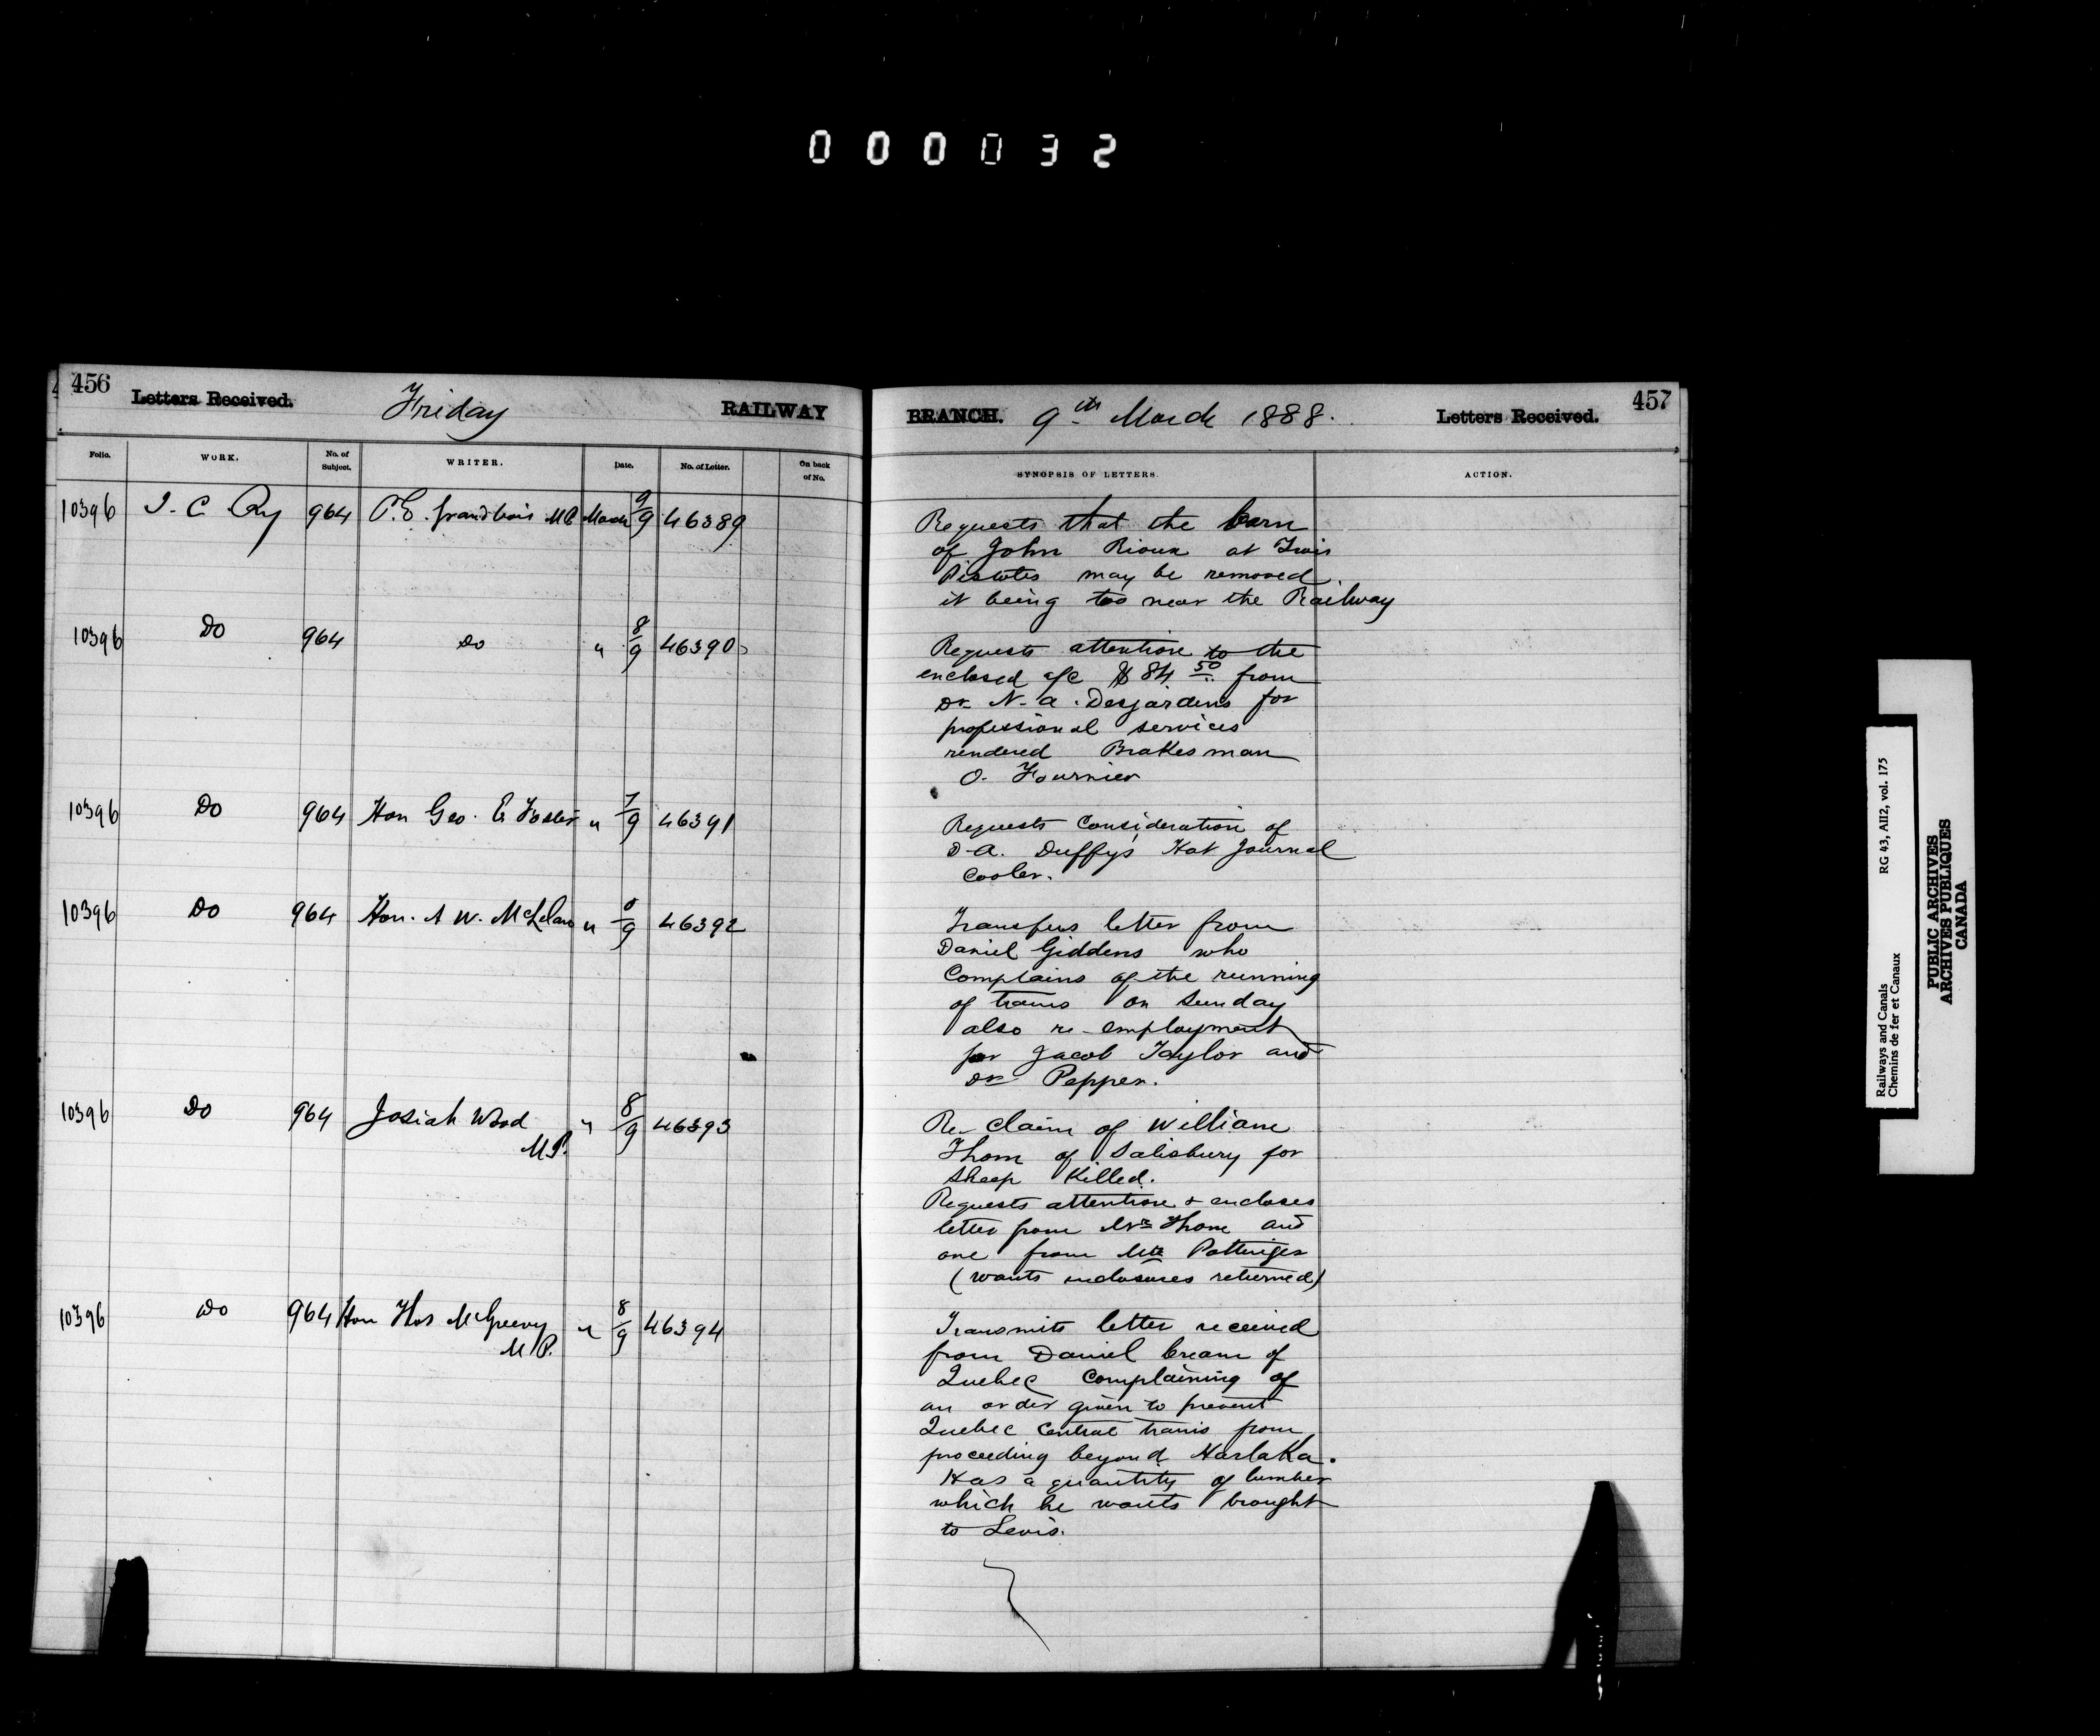 000032
456
Letters Received.
Friday
RAILWAY
BRANCH.
9th March 1888.
Letters Received.
457
Folio.
WORK.
No. of Subject.
WRITER.
Date.
No. of Letter.
On back of No.
SYNOPSIS OF LETTERS.
ACTION.
10396 I. C. Ry 964 P. E. Grandbois MP March 9/9 46389
Requests that the barn
of John Rioux at Trois
Pistoles may be removed
it being too near the Railway
10396 Do 964 Do " 8/9 46390
Requests attention to the
enclosed a/c $84 50 from
Dr N. A. Desjardins for
professional services
rendered Brakesman
O. Fournier
10396 Do 964 Hon Geo. E Foster " 7/9 46391
Requests Consideration of
D. A. Duffy's Hot Journal
Cooler.
10396 Do 964 Hon. A W. McLelan " 8/9 46392
Transfers letter from
Daniel Giddens who
Complains of the running
of trains on Sunday
also re-employment
for Jacob Taylor and
Dr Pepper.
10396 Do 964 Josiah Wood " 8/9 46393
M.P.
Re- Claim of William
Thom of Salisbury for
Sheep Killed.
Requests attention & encloses
letter from Mr Thom and
one from Mr Pottinger
(wants enclosures returned)
10396 Do 964 Hon Thos McGreevy " 8/9 46394
M.P.
Transmits letter received
from Daniel Cream of
Quebec Complaining of
an order given to prevent
Quebec Central trains from
proceeding beyond Harlaka.
Has a quantity of lumber
which he wants brought
to Levis.
Railways and Canals
Chemins de fer et Canaux
RG 43, AII2, vol. 175
PUBLIC ARCHIVES
ARCHIVES PUBLIQUES
CANADA